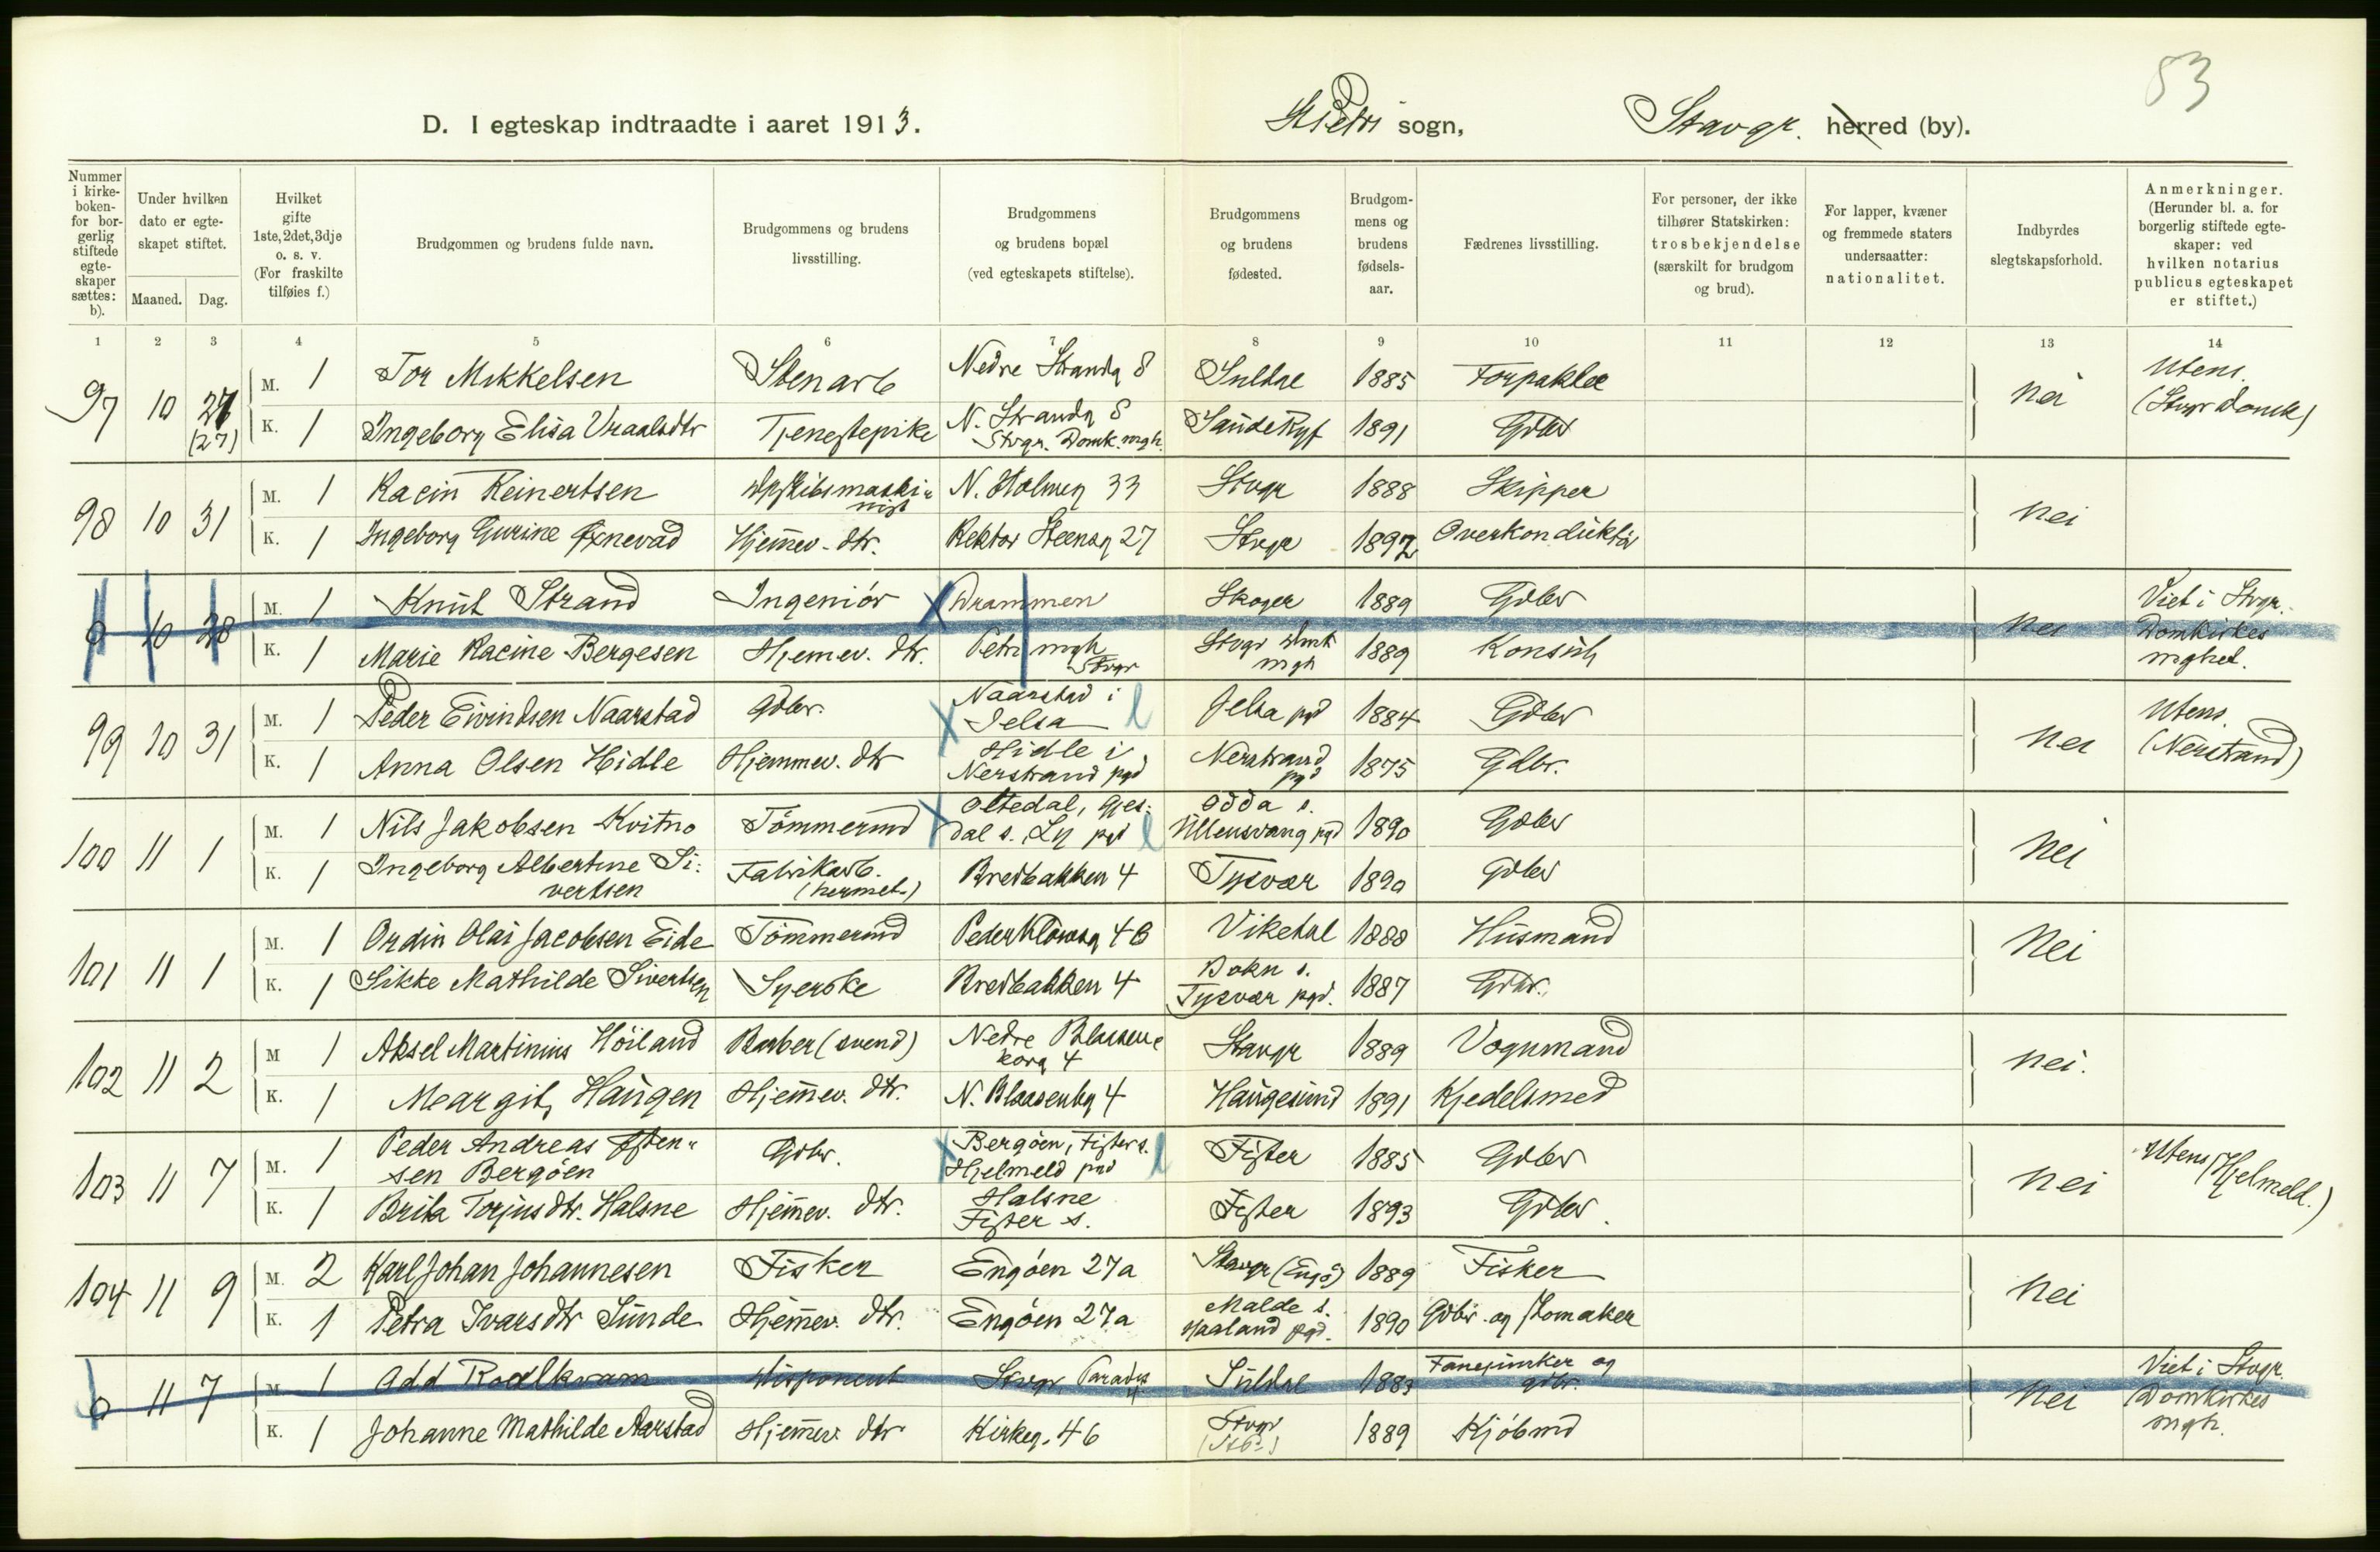 53
D. I egteskap indtraadte i aaret 1913. St Petri sogn, Stavgr. herred (by).
Nummer i kirke-boken- for bor-gerlig stiftede egte-skaper sættes: b).
Under hvilken dato er egte-skapet stiftet.
Maaned. Dag.
Hvilket gifte 1ste, 2det, 3dje o. s. v. (For fraskilte tilføies f.)
Brudgommen og brudens fulde navn.
Brudgommens og brudens livsstilling.
Brudgommens og brudens bopæl (ved egteskapets stiftelse).
Brudgommens og brudens fødested.
Brudgom-mens og brudens fødsels-aar.
Fædrenes livsstilling.
For personer, der ikke tilhører Statskirken: trosbekjendelse (særskilt for brudgom og brud).
For lapper, kvæner og fremmede staters undersaatter: nationalitet.
Indbyrdes slegtskapsforhold.
Anmerkninger. (Herunder bl. a. for borgerlig stiftede egte-skaper: ved hvilken notarius publicus egteskapet er stiftet.)
1 2 3 4 5 6 7 8 9 10 11 12 13 14
97 10 27 (27) M. 1 Tor Mikkelsen Stenarb Nedre Strandg 8 Suldal 1885 Forpakter nei Utens. (Stvgr Domk)
K. 1 Ingeborg Elisa Vraalsdtr Tjenestepike N. Strandg 8 Stvgr. Domk. mgh. Sande Ryf 1891 Gdbr
98 10 31 M. 1 Racin Reinertsen Dpskibsmaski-nist N. Holmeg 33 Stvgr 1888 Skipper nei
K. 1 Ingeborg Gurine Hjemev. dtr. Rektor Steensg 27 Stvgr 1892 Overkonduktør
0 10 28 M. 1 Knut Strand Ingeniør Drammen Skoger 1889 Gdbr nei Viet i Stvgr. Domkirkes mghed.
K. 1 Marie Racine Bergesen Hjemev. dtr. Petri mgh Stvgr Stvgr Dmk mgh 1889 Konsul
99 10 31 M. 1 Peder Eivindsen Naarstad Gdbr. Naarstad i Jelsa Jelsa pgd 1884 Gdbr nei Utens. (Nerstrand)
K. 1 Anna Olsen Hidle Hjemmev. dtr Hidle i Nerstrand pgd Nerstrand pgd 1875 Gdbr.
100 11 1 M. 1 Nils Jakobsen Kvitno Tømmermd Oltedal, Gjes-dal s. Ly pgd Odda s. Ullensvang pgd 1890 Gdbr nei
K. 1 Ingeborg Albertine Si-vertsen Fabrikarb. (hermet.) Bredbakken 4 Tysvær 1890 Gdbr
101 11 1 M. 1 Ordin Olai Jacobsen Eide Tømmermd Peder Klowsg 4 B Vikedal 1888 Husmand Nei
K. 1 Sikke Mathilde Sivertsen Syerske Bredbakken 4 Bokn s. Tysvær pgd. 1887 Gdbr.
102 11 2 M 1 Aksel Martinius Høiland Barber (svend) Nedre Blaasen-borg 4 Stavgr 1889 Vognmand nei.
K. 1 Margit Haugen Hjemev. dtr. N. Blaasenbg 4 Haugesund 1891 Kjedelsmed
103 11 7 M. 1 Peder Andreas Østen-sen Bergøen Gdbr. Bergøen, Fister s. Hjelmeld pgd Fister 1885 Gdbr nei Utens (Hjelmeld.)
K. 1 Brita Torjusdtr. Halsne Hjemev. dtr. Halsne Fister s. Fister 1893 Gdbr.
104 11 9 M. 2 Karl Johan Johannesen Fisker Engøen 27a Stavgr (Engø) 1889 Fisker nei
K. 1 Petra Ivarsdtr Sunde Hjemev. dtr. Engøen 27a Malde s. Haaland pgd. 1890 Gdbr. og skomaker
0 11 7 M. 1 Odd Roalkvam Disponent Stvgr, Paradis 4 Suldal 1883 Fanejunker og gdbr. nei Viet i Stvgr. Domkirkes mgh.
K. 1 Johanne Mathilde Aarstad Hjemev dtr Kirkeg. 46 Stvgr 1889 Kjøbmd